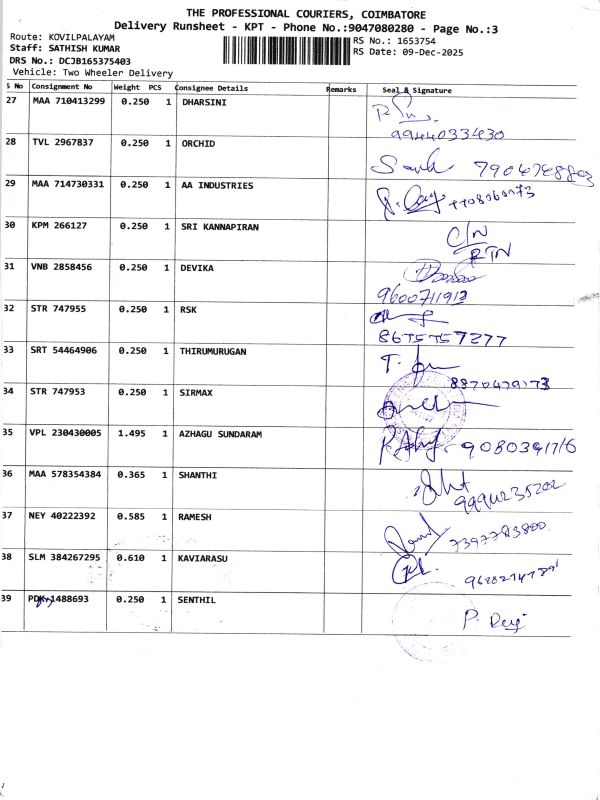 THE PROFESSIONAL COURIERS, COIMBATORE
Delivery Runsheet - KPT - Phone No.:9047080280 - Page No.:3
Route: KOVILPALAYAM
Staff: SATHISH KUMAR
DRS No.: DCJB165375403
Vehicle: Two Wheeler Delivery
RS No.: 1653754
RS Date: 09-Dec-2025
S No Consignment No Weight PCS Consignee Details Remarks Seal & Signature
27 MAA 710413299 0.250 1 DHARSINI
9944033430
28 TVL 2967837 0.250 1 ORCHID
7904748803
29 MAA 714730331 0.250 1 AA INDUSTRIES
30 KPM 266127 0.250 1 SRI KANNAPIRAN C/N
RTN
31 VNB 2858456 0.250 1 DEVIKA
9600711913
32 STR 747955 0.250 1 RSK
8675757277
33 SRT 54464906 0.250 1 THIRUMURUGAN
8870479173
34 STR 747953 0.250 1 SIRMAX
35 VPL 230430005 1.495 1 AZHAGU SUNDARAM 9080391716
36 MAA 578354384 0.365 1 SHANTHI
9994235202
37 NEY 40222392 0.585 1 RAMESH
7397783800
38 SLM 384267295 0.610 1 KAVIARASU
39 PDK 1488693 0.250 1 SENTHIL P. Devi